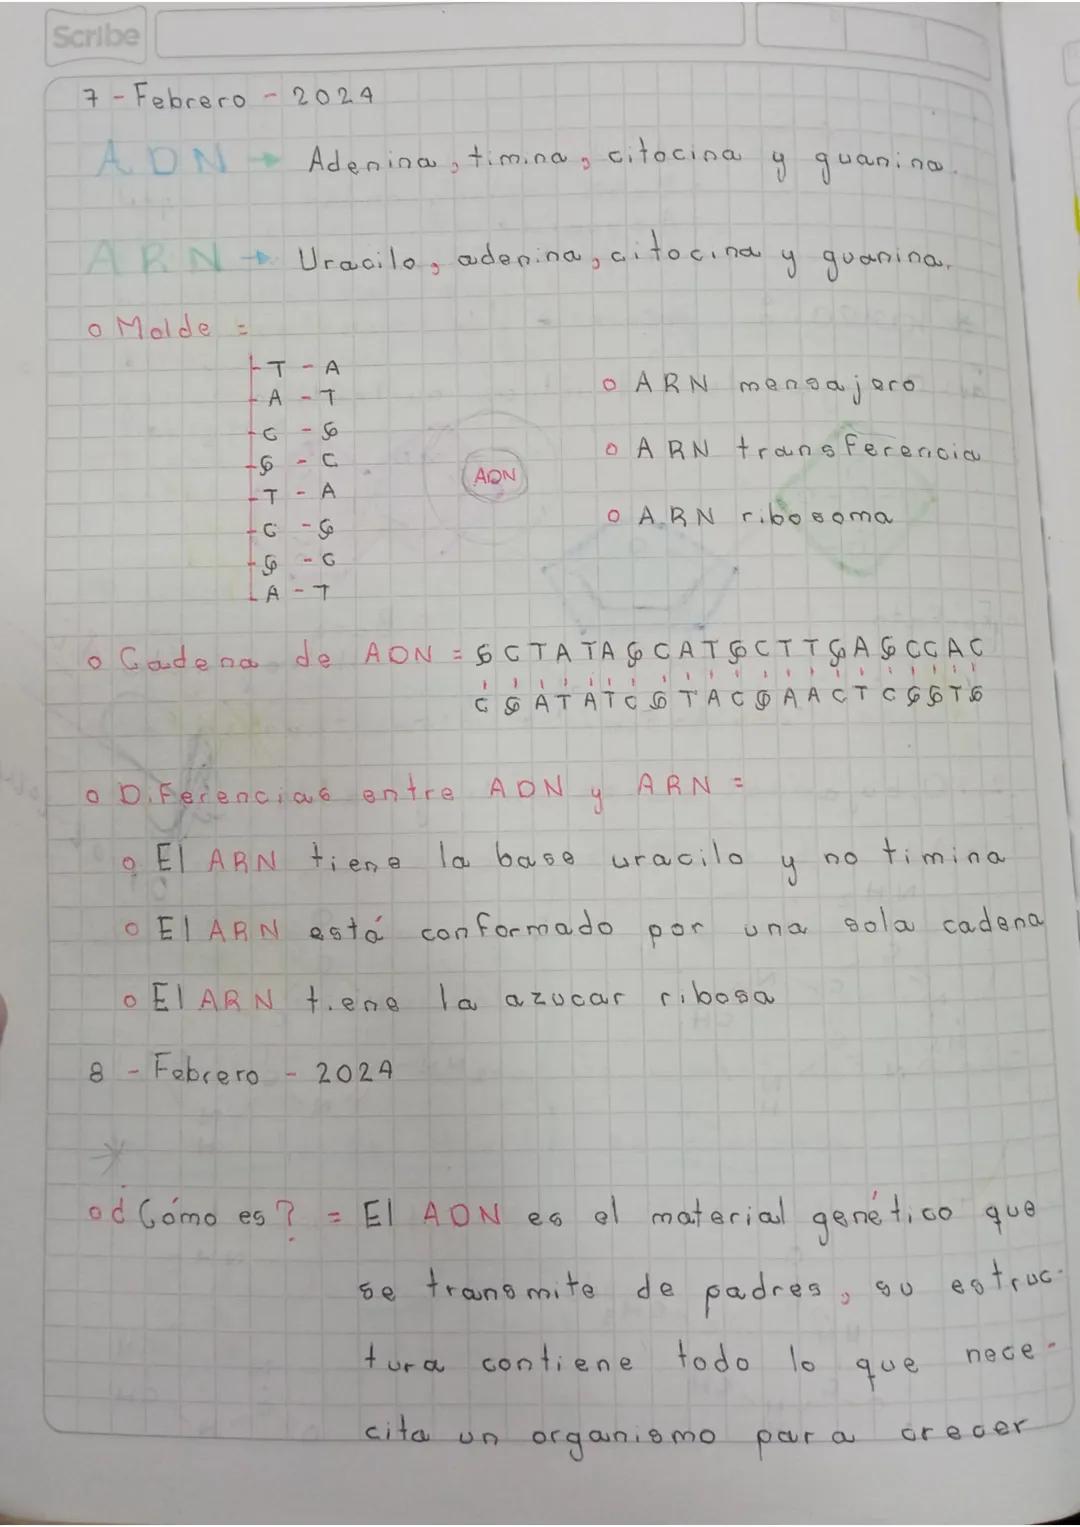 Scribe
7 - Febrero - 2024
ADN → Adenina, timina, citocina y guanina.
ARN → Uracilo, adenina, citocina y guanina.
o Molde =
T - A
A - T
C - G
G - C
T - A
C - G
G - C
A - T
ADN
o ARN mensajero
o ARN transferencia
o ARN ribosoma
o Cadena de ADN = GCTATAGCATGCTTGAGCCAC
CGATATCGTACGAACTCGGTG
o Diferencias entre ADN y ARN =
o El ARN tiene la base uracilo y no timina
o El ARN está conformado por una sola cadena
o El ARN tiene la azucar ribosa
8 - Febrero - 2024
o ¿Cómo es? = El ADN es el material genético que
se transmite de padres, su estruc-
tura contiene todo lo que nece-
cita un organismo para crecer